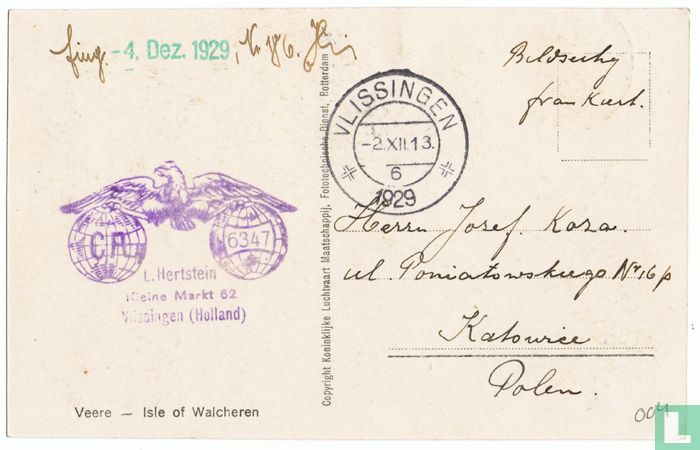 fing. -4. Dez. 1929,
Bildseitig
frankiert.
VLISSINGEN
-2.XII.13.
6
1929
C.P.
6347
L. Hertstein
Kleine Markt 62
Vlissingen (Holland)
Herrn Josef Koza.
ul. Poniatowskiego Nr 16 p
Katowice
Polen.
Copyright Koninklijke Luchtvaart Maatschappij, Fototechnische-Dienst, Rotterdam
Veere — Isle of Walcheren
004
L